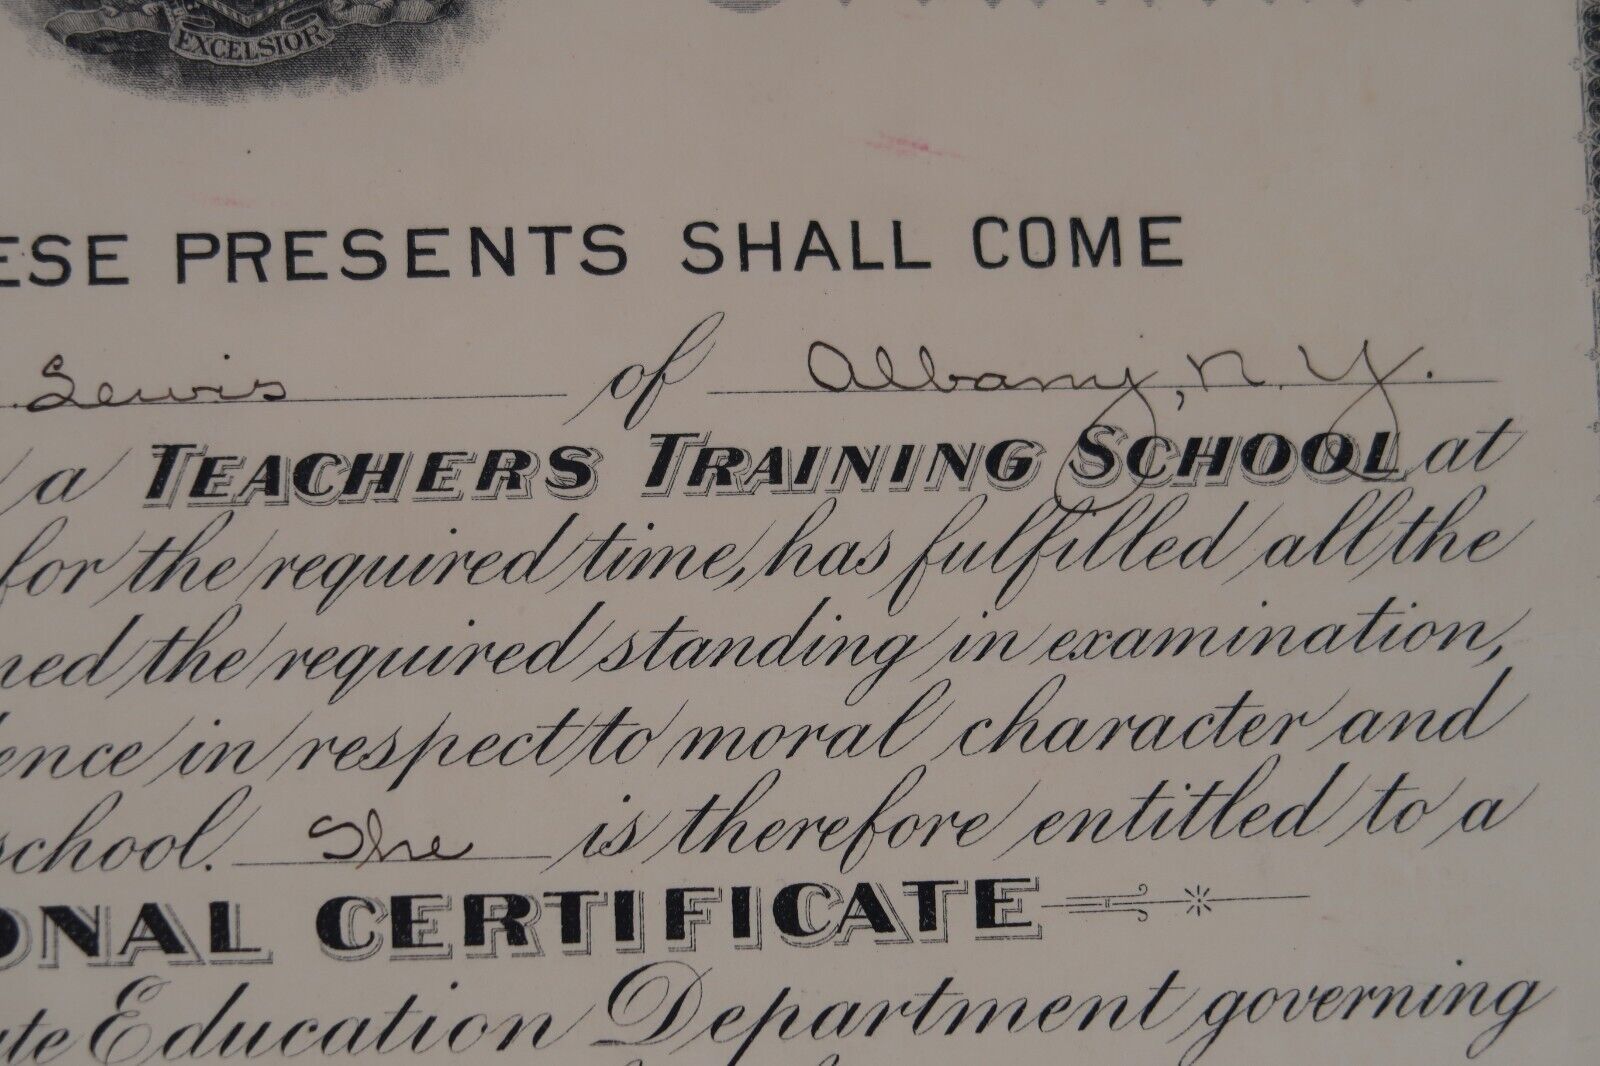 EXCELSIOR
ESE PRESENTS SHALL COME
Lewis of Albany, N. Y.
a TEACHERS TRAINING SCHOOL at
for the required time, has fulfilled all the
ned the required standing in examination,
ence in respect to moral character and
school. She is therefore entitled to a
ONAL CERTIFICATE
ate Education Department governing